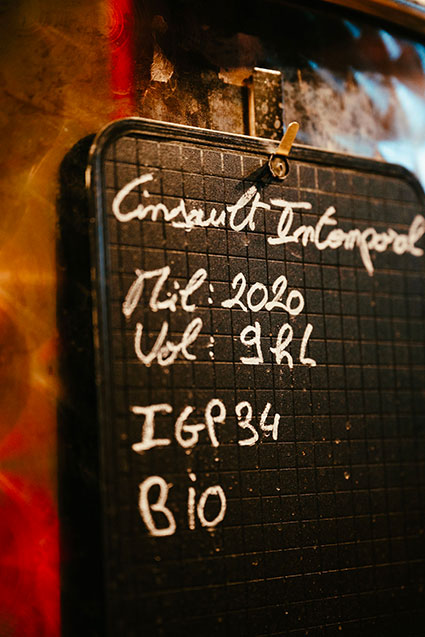 Cinsault Intomporal
Mil: 2020
Vol: 9hL
IGP34
Bio